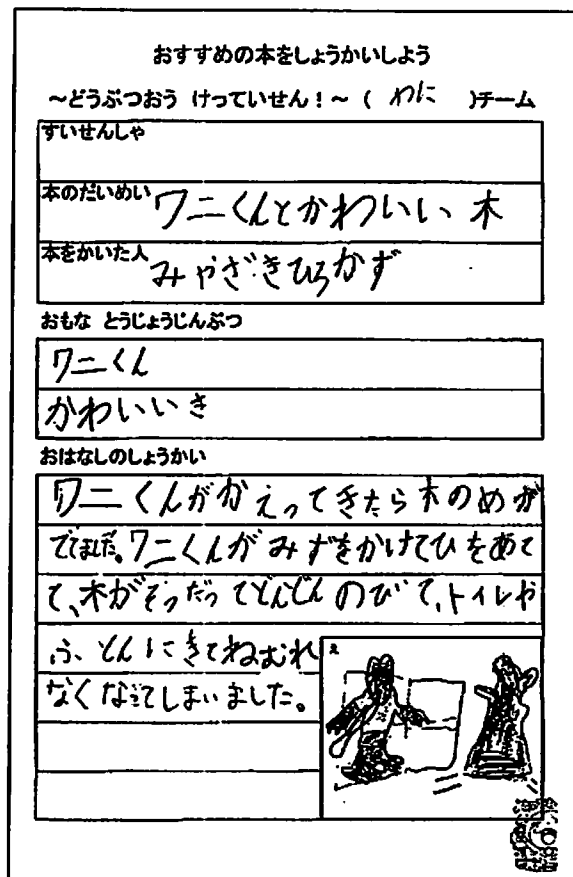 おすすめの本をしょうかいしよう
~どうぶつおう けっていせん!~ ( わに )チーム
すいせんしゃ
本のだいめい ワニくんとかわいい木
本をかいた人 みやざきひろかず
おもな とうじょうじんぶつ
ワニくん
かわいいき
おはなしのしょうかい
ワニくんがかえってきたら木のめが
でてました。ワニくんがみずをかけてひをあて
て、木がそだってどんどんのびて、トイレや
ふとんにきてねむれ
なくなってしまいました。